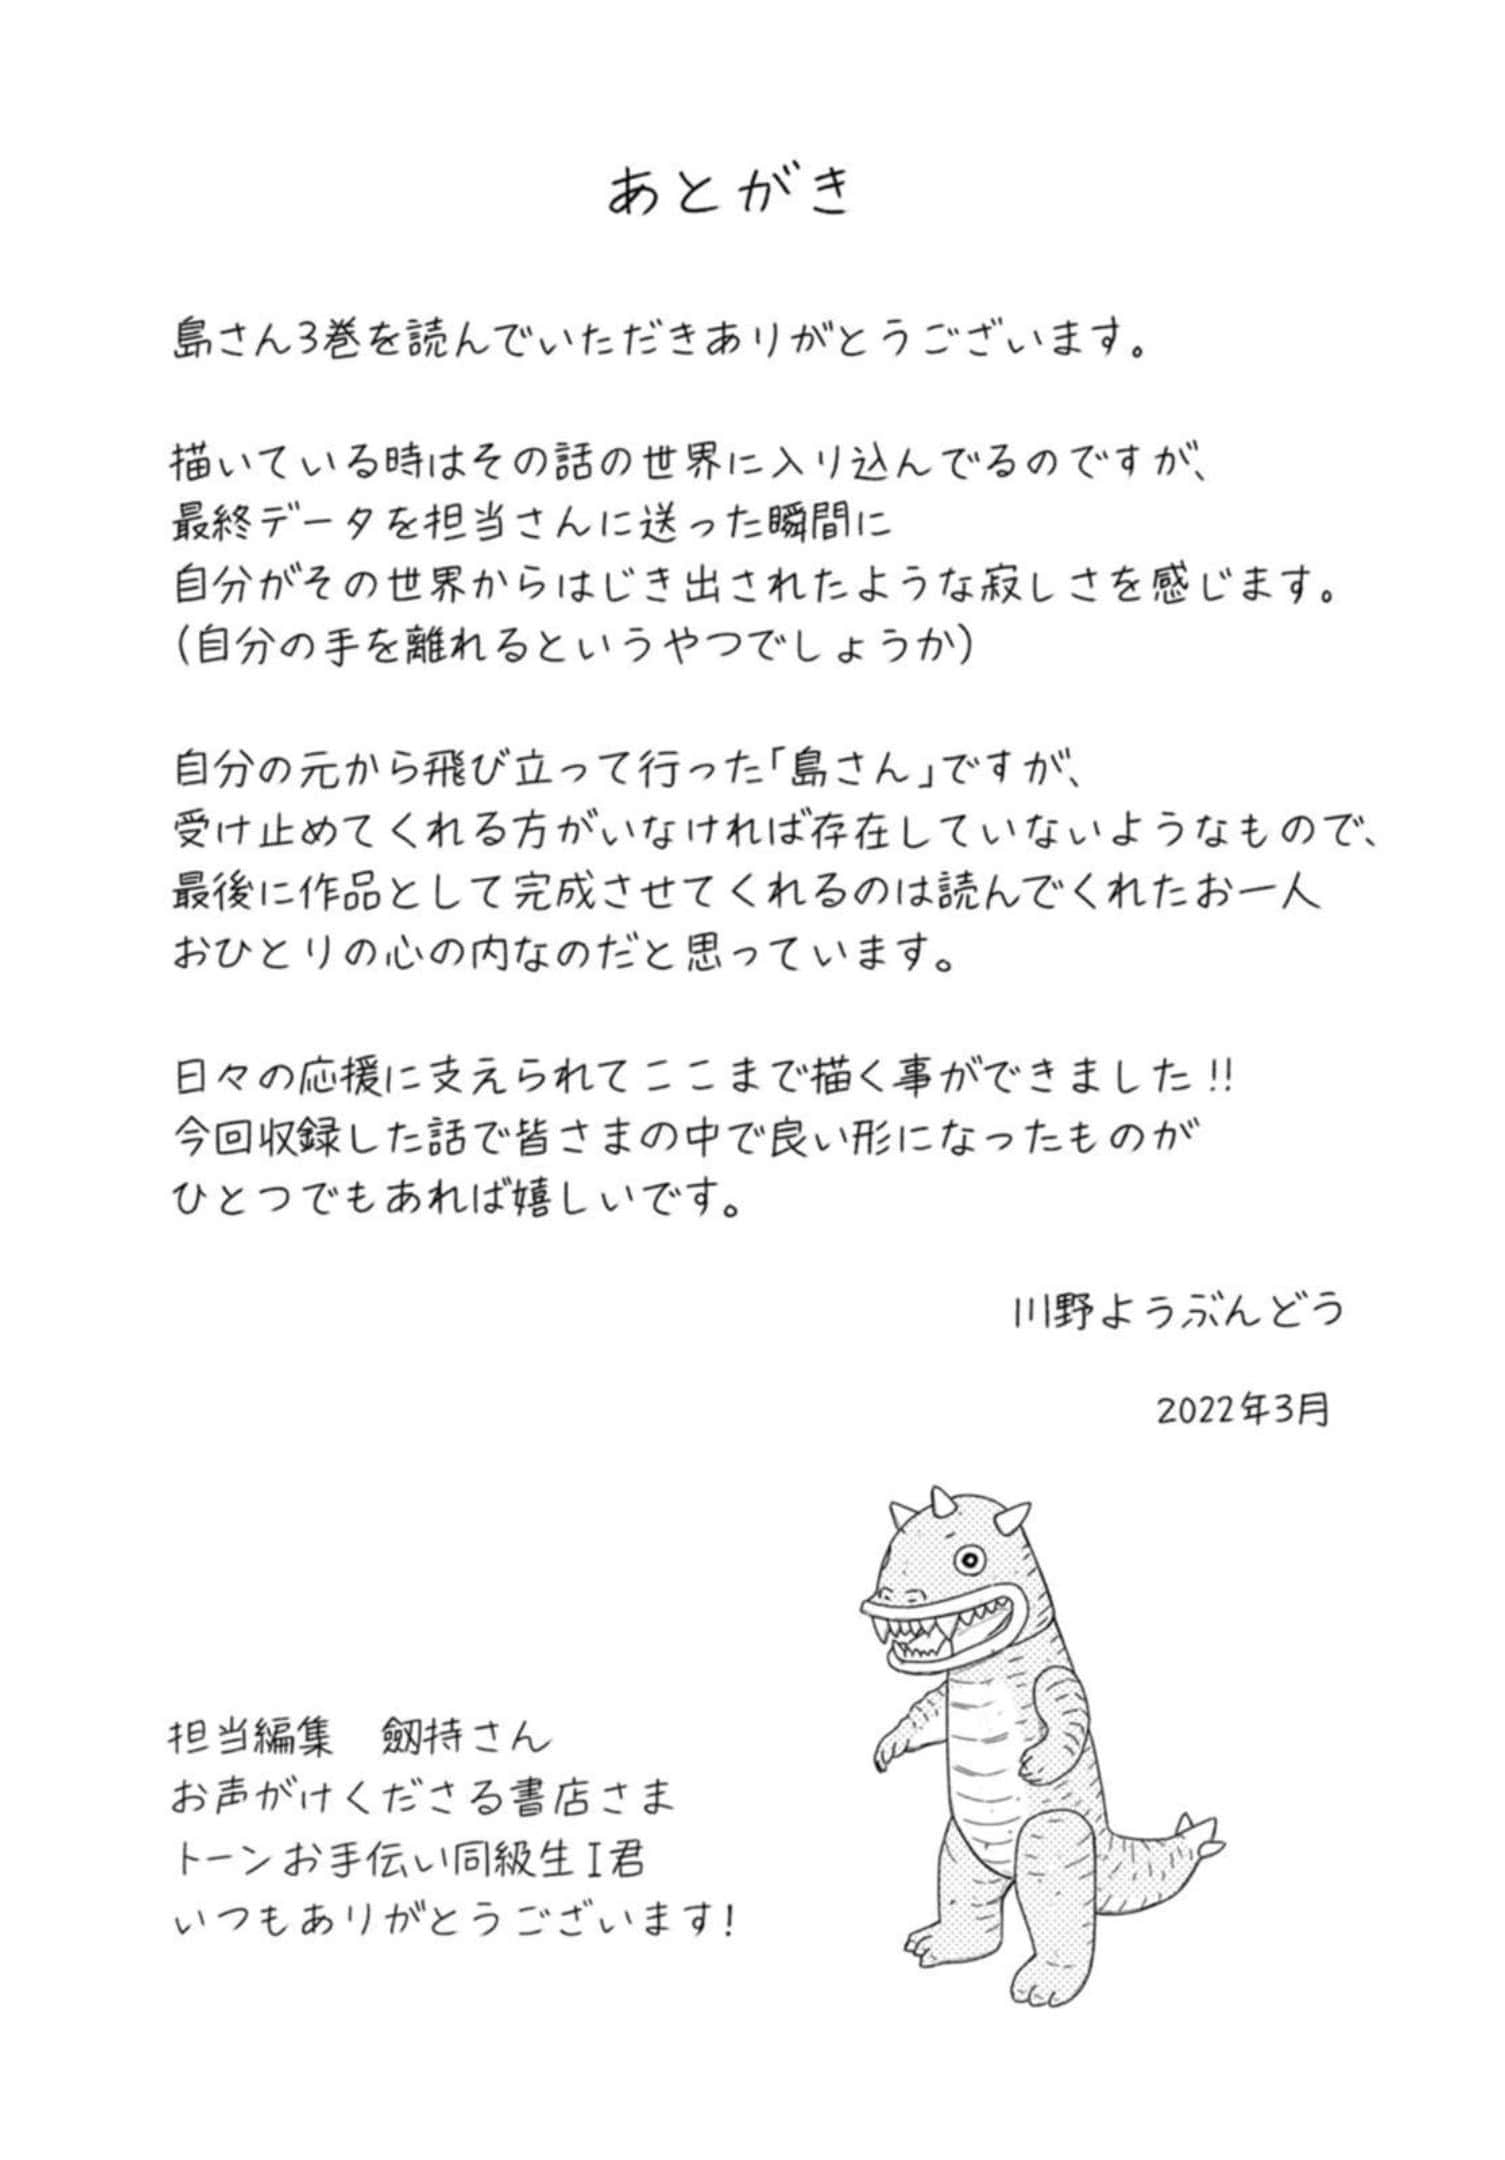 あとがき
島さん3巻を読んでいただきありがとうございます。
描いている時はその話の世界に入り込んでるのですが、
最終データを担当さんに送った瞬間に
自分がその世界からはじき出されたような寂しさを感じます。
(自分の手を離れるというやつでしょうか)
自分の元から飛び立って行った「島さん」ですが、
受け止めてくれる方がいなければ存在していないようなもので、
最後に作品として完成させてくれるのは読んでくれたお一人
おひとりの心の内なのだと思っています。
日々の応援に支えられてここまで描く事ができました!!
今回収録した話で皆さまの中で良い形になったものが
ひとつでもあれば嬉しいです。
川野ようぶんどう
2022年3月
担当編集　劔持さん
お声がけくださる書店さま
トーンお手伝い同級生I君
いつもありがとうございます!